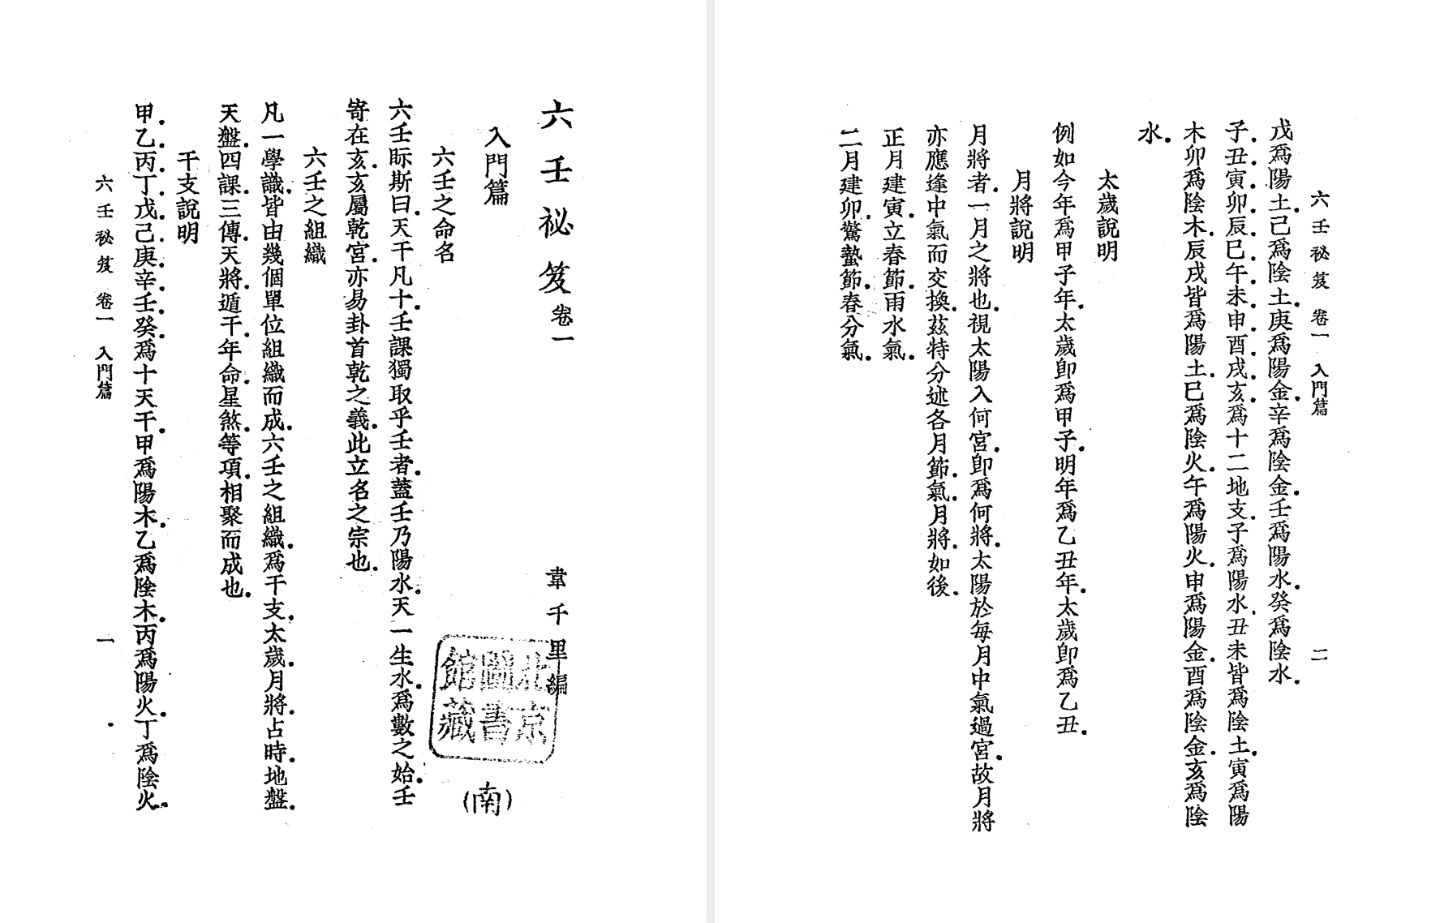 六壬祕笈卷一
韋千里編
北京
圖書
館藏
(南)
入門篇
六壬之命名
六壬眎斯曰。天干凡十。壬課獨取乎壬者。蓋壬乃陽水。天一生水。爲數之始。壬
寄在亥。亥屬乾宮。亦易卦首乾之義。此立名之宗也。
六壬之組織
凡一學識。皆由幾個單位組織而成。六壬之組織。爲干支。太歲。月將。占時。地盤。
天盤。四課。三傳。天將。遁干。年命。星煞。等項。相聚而成也。
干支說明
甲。乙。丙。丁。戊。己。庚。辛。壬。癸。爲十天干。甲爲陽木。乙爲陰木。丙爲陽火。丁爲陰火。
六壬祕笈 卷一 入門篇
一
六壬祕笈 卷一 入門篇
二
戊爲陽土。己爲陰土。庚爲陽金。辛爲陰金。壬爲陽水。癸爲陰水。
子。丑。寅。卯。辰。巳。午。未。申。酉。戌。亥。爲十二地支。子爲陽水。丑未皆爲陰土。寅爲陽
木。卯爲陰木。辰戌皆爲陽土。巳爲陰火。午爲陽火。申爲陽金。酉爲陰金。亥爲陰
水。
太歲說明
例如今年爲甲子年。太歲卽爲甲子。明年爲乙丑年。太歲卽爲乙丑。
月將說明
月將者。一月之將也。視太陽入何宮。卽爲何將。太陽於每月中氣過宮。故月將
亦應逢中氣而交換。茲特分述各月節。氣。月將。如後。
正月建寅。立春節。雨水氣。
二月建卯。驚蟄節。春分氣。